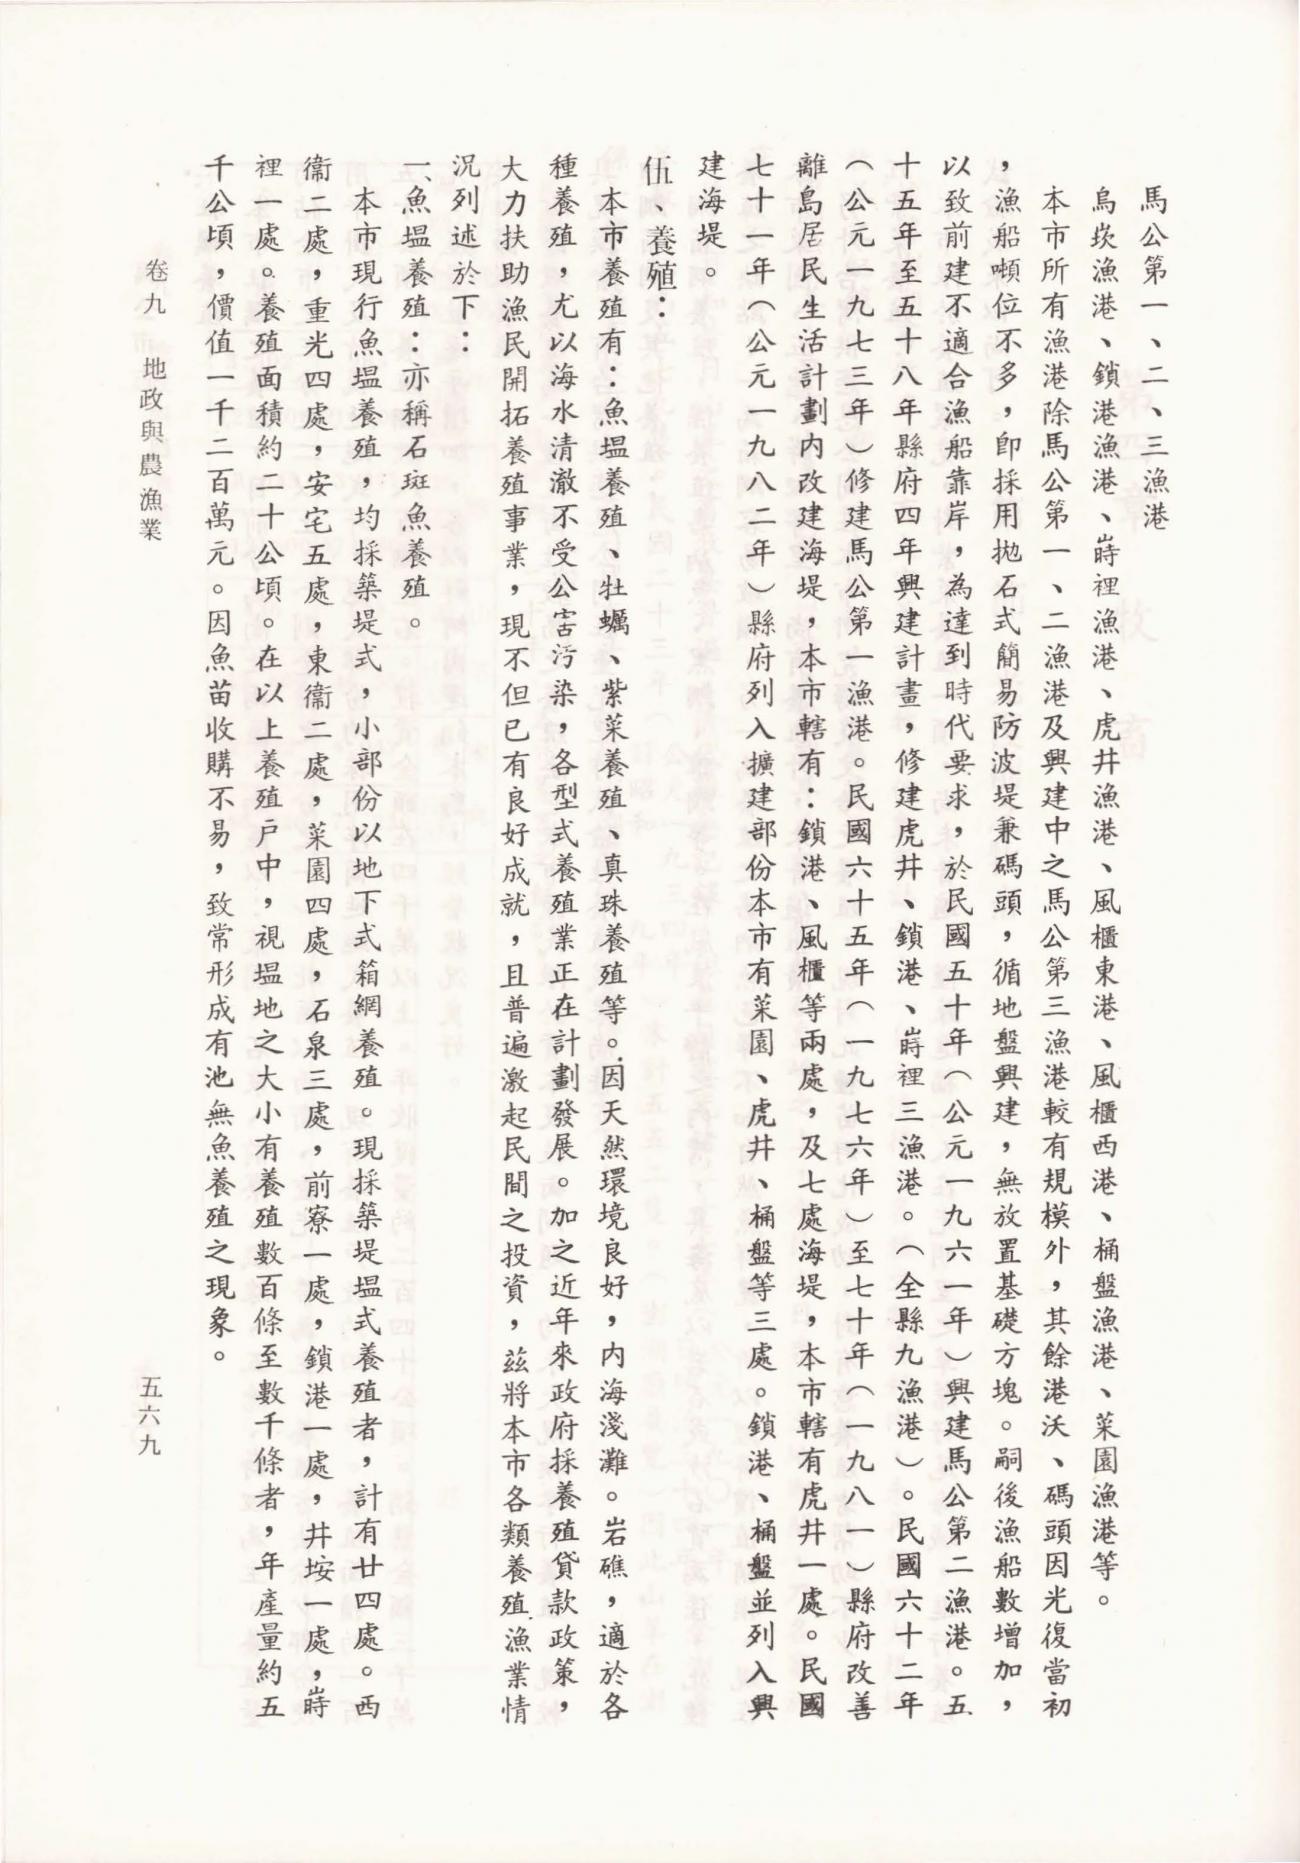 馬公第一、二、三漁港
烏崁漁港、鎖港漁港、嵵裡漁港、虎井漁港、風櫃東港、風櫃西港、桶盤漁港、菜園漁港等。
本市所有漁港除馬公第一、二漁港及興建中之馬公第三漁港較有規模外，其餘港沃、碼頭因光復當初
，漁船噸位不多，即採用拋石式簡易防波堤兼碼頭，循地盤興建，無放置基礎方塊。嗣後漁船數增加，
以致前建不適合漁船靠岸，為達到時代要求，於民國五十年（公元一九六一年）興建馬公第二漁港。五
十五年至五十八年縣府四年興建計畫，修建虎井、鎖港、嵵裡三漁港。（全縣九漁港）。民國六十二年
（公元一九七三年）修建馬公第一漁港。民國六十五年（一九七六年）至七十年（一九八一）縣府改善
離島居民生活計劃內改建海堤，本市轄有：鎖港、風櫃等兩處，及七處海堤，本市轄有虎井一處。民國
七十一年（公元一九八二年）縣府列入擴建部份本市有菜園、虎井、桶盤等三處。鎖港、桶盤並列入興
建海堤。
伍、養殖：
本市養殖有：魚塭養殖、牡蠣、紫菜養殖、真珠養殖等。因天然環境良好，內海淺灘。岩礁，適於各
種養殖，尤以海水清澈不受公害污染，各型式養殖業正在計劃發展。加之近年來政府採養殖貸款政策，
大力扶助漁民開拓養殖事業，現不但已有良好成就，且普遍激起民間之投資，茲將本市各類養殖漁業情
況列述於下：
一、魚塭養殖：亦稱石斑魚養殖。
本市現行魚塭養殖，均採築堤式，小部份以地下式箱網養殖。現採築堤塭式養殖者，計有廿四處。西
衛二處，重光四處，安宅五處，東衛二處，菜園四處，石泉三處，前寮一處，鎖港一處，井垵一處，嵵
裡一處。養殖面積約二十公頃。在以上養殖戶中，視塭地之大小有養殖數百條至數千條者，年產量約五
千公頃，價值一千二百萬元。因魚苗收購不易，致常形成有池無魚養殖之現象。
卷九　地政與農漁業
五六九